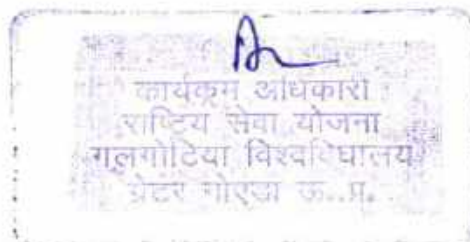 कार्यक्रम अधिकारी
राष्ट्रिय सेवा योजना
गलगोटिया विश्वविघालय
ग्रेटर नोएडा ऊ..प्र.